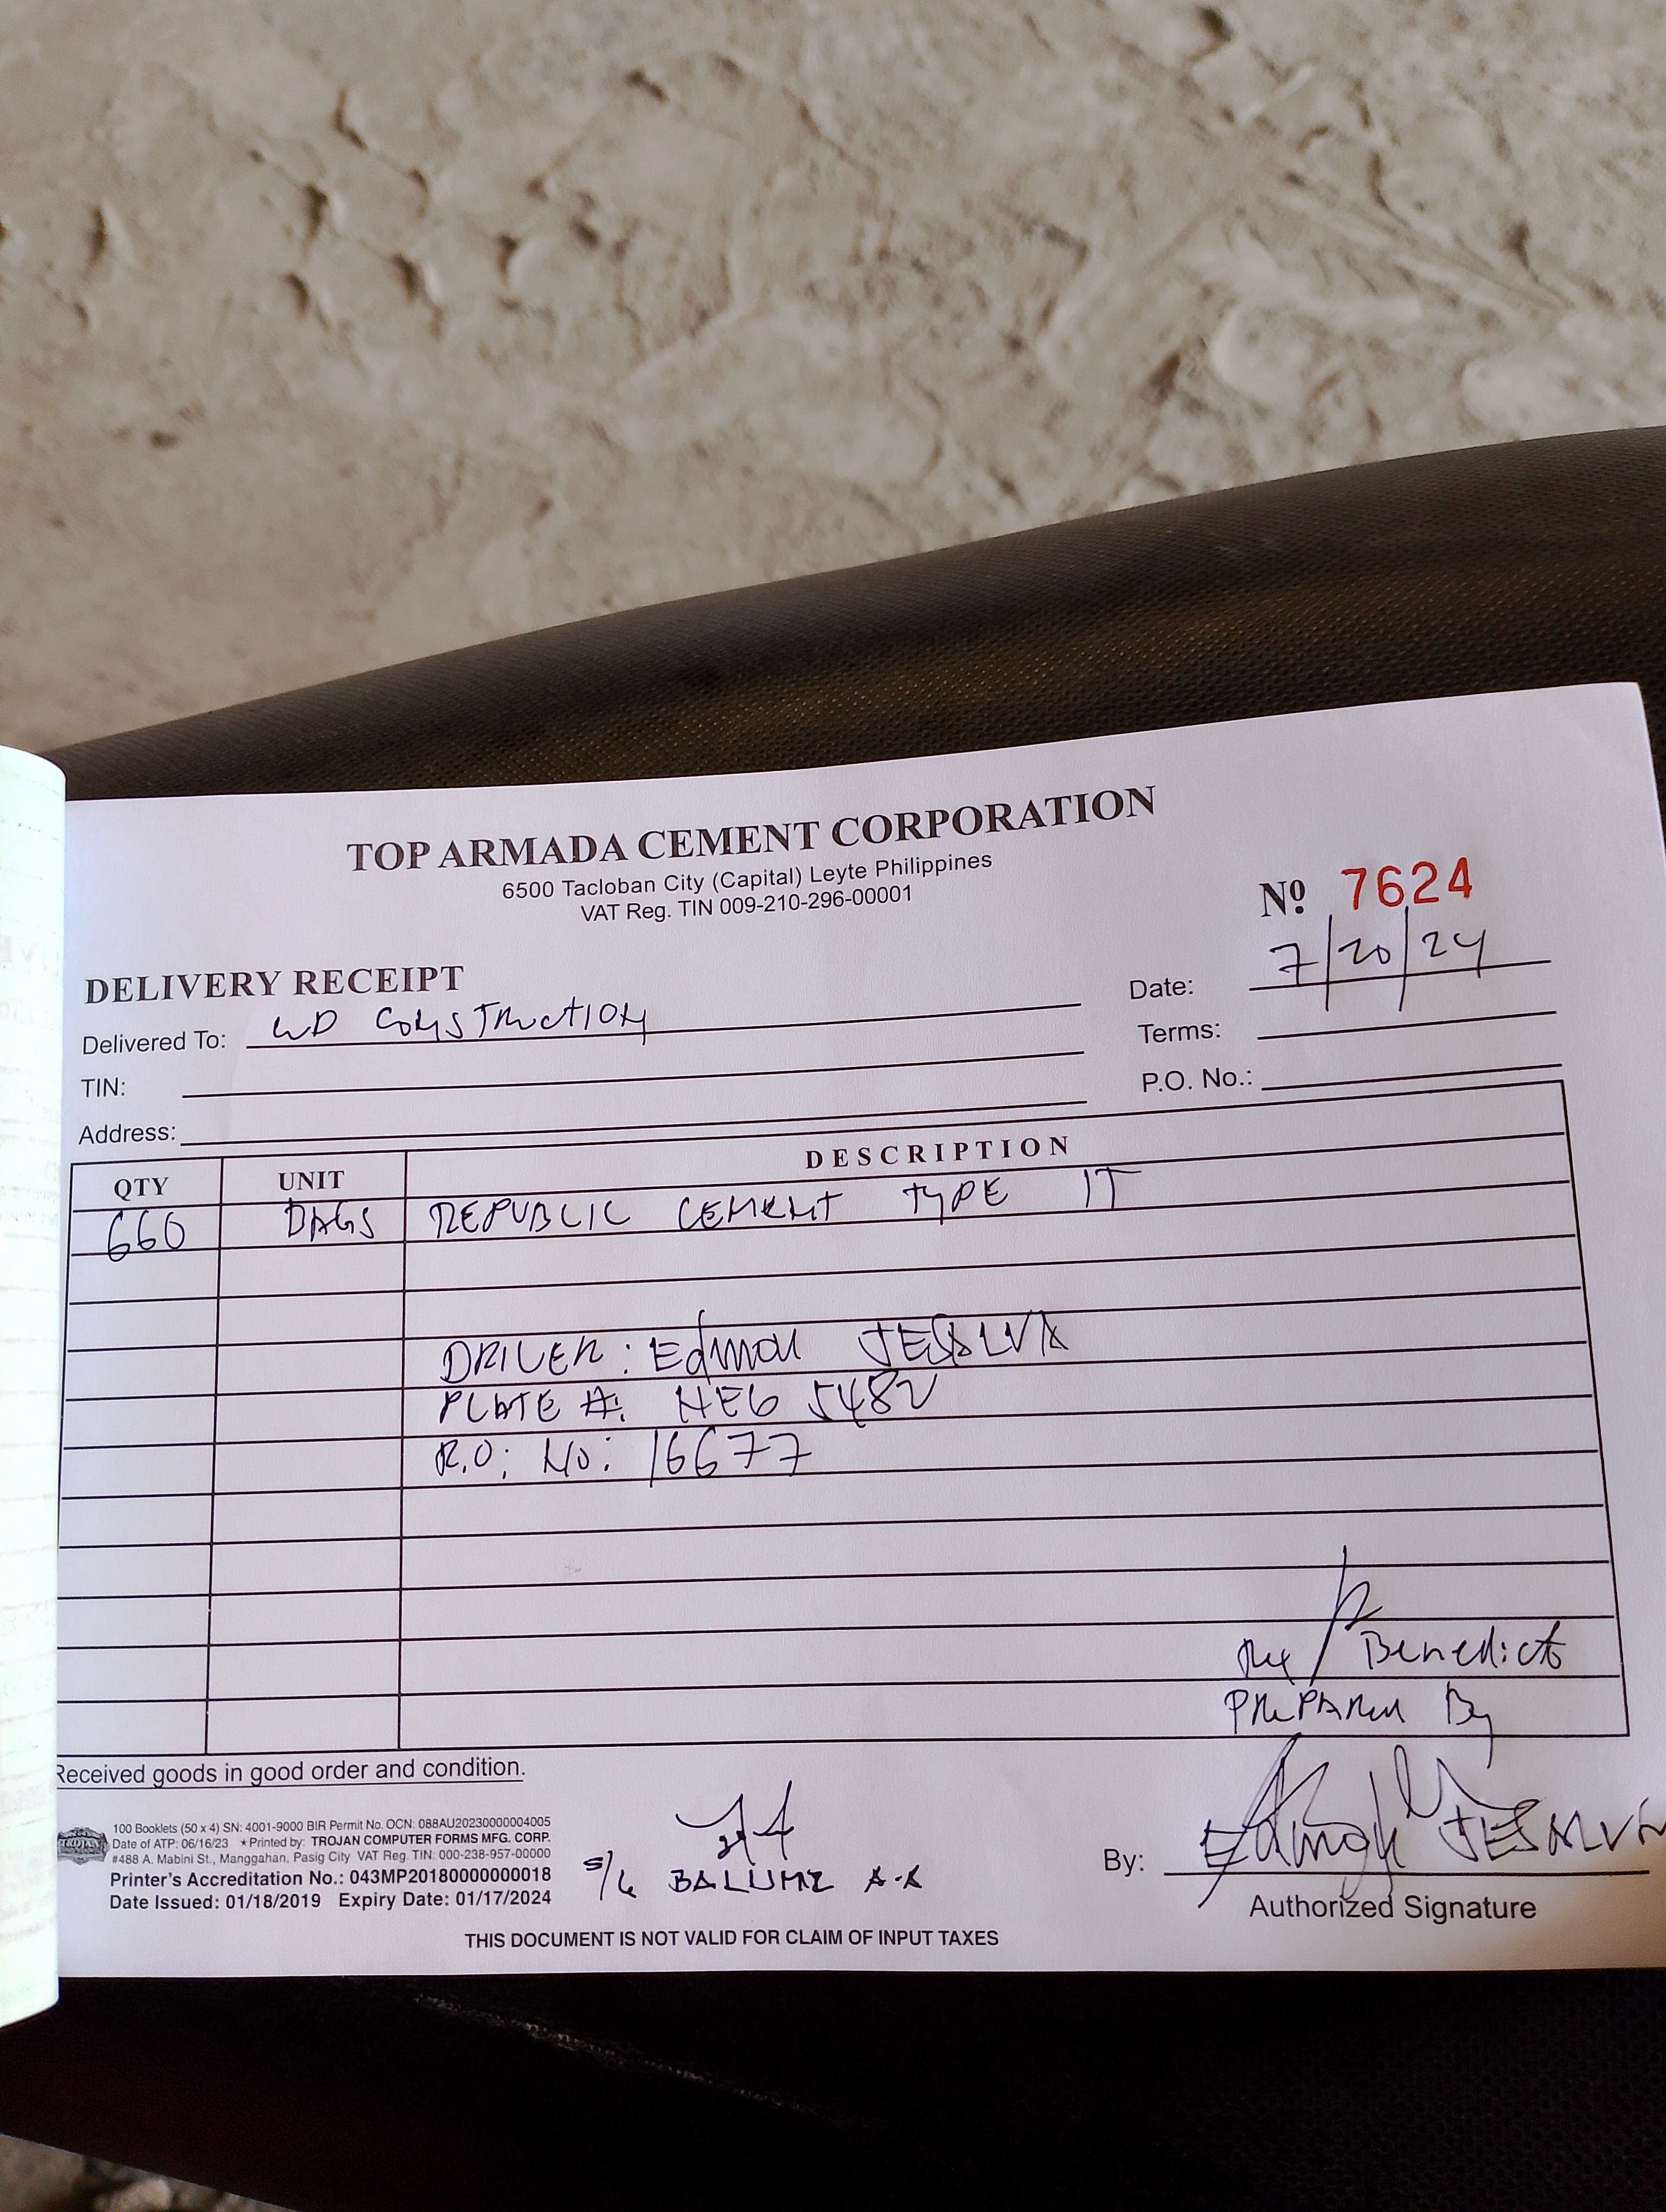 TOP ARMADA CEMENT CORPORATION
6500 Tacloban City (Capital) Leyte Philippines
VAT Reg. TIN 009-210-296-00001
Nº 7624
DELIVERY RECEIPT
Date: 7/20/24
Delivered To: WD CONSTRUCTION
Terms:
TIN:
P.O. No.:
Address:
QTY UNIT DESCRIPTION
660 BAGS REPUBLIC CEMENT TYPE 1T
DRIVER: Edmon
PLATE #: 5482
R.O. No: 16677
Benedict
PREPARED By
Received goods in good order and condition.
100 Booklets (50 x 4) SN: 4001-9000 BIR Permit No. OCN: 088AU20230000004005
TROJAN Date of ATP: 06/16/23 ★Printed by: TROJAN COMPUTER FORMS MFG. CORP.
#488 A. Mabini St., Manggahan, Pasig City VAT Reg. TIN: 000-238-957-00000
Printer's Accreditation No.: 043MP20180000000018
Date Issued: 01/18/2019 Expiry Date: 01/17/2024
S/G
By:
Authorized Signature
THIS DOCUMENT IS NOT VALID FOR CLAIM OF INPUT TAXES